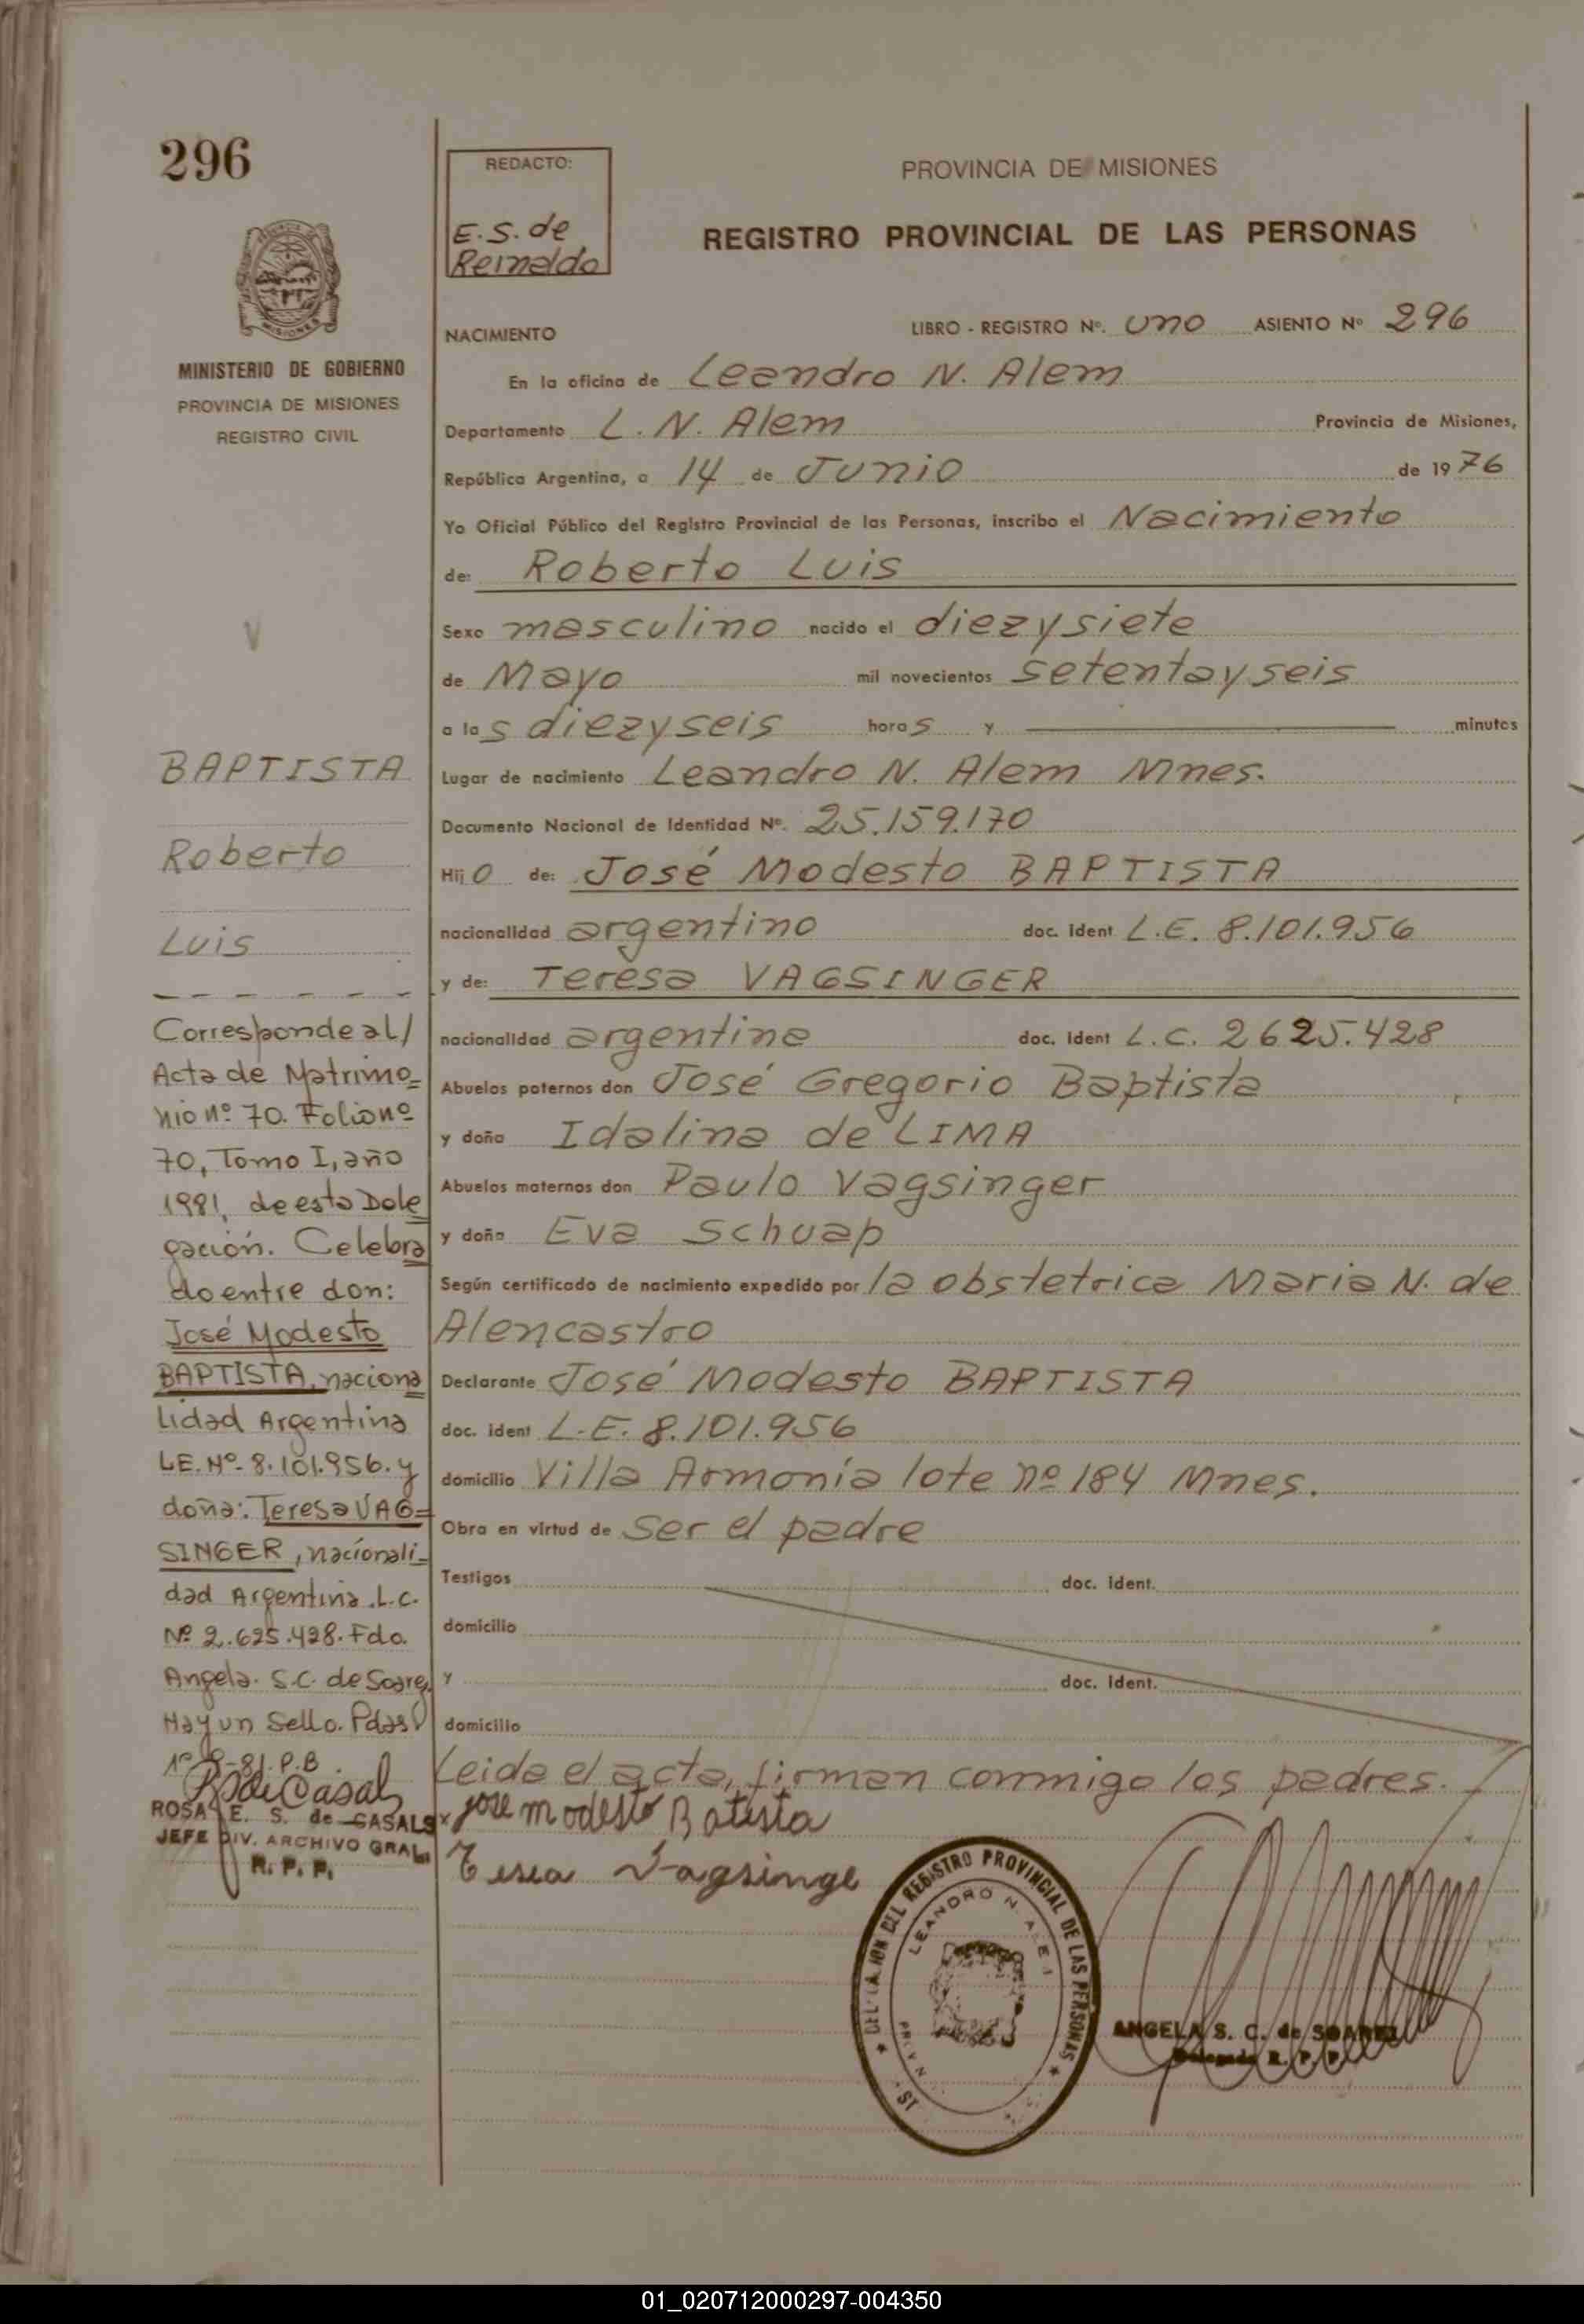 296
MINISTERIO DE GOBIERNO
PROVINCIA DE MISIONES
REGISTRO CIVIL
REDACTO:
E.S. de
Reinaldo
PROVINCIA DE MISIONES
REGISTRO PROVINCIAL DE LAS PERSONAS
NACIMIENTO
LIBRO - REGISTRO Nº. uno ASIENTO Nº 296
En la oficina de Leandro N. Alem
Departamento L. N. Alem Provincia de Misiones,
República Argentina, a 14 de Junio de 1976
Yo Oficial Público del Registro Provincial de las Personas, inscribo el Nacimiento
de: Roberto Luis
Sexo masculino nacido el diezysiete
de Mayo mil novecientos setentayseis
a las diezyseis horas y minutos
Lugar de nacimiento Leandro N. Alem Mnes.
Documento Nacional de Identidad Nº. 25.159.170
Hijo de: José Modesto BAPTISTA
nacionalidad argentino doc. ident L.E. 8.101.956
y de: Teresa VAGSINGER
nacionalidad argentina doc. ident L.C. 2625.428
Abuelos paternos don José Gregorio Baptista
y doña Idalina de LIMA
Abuelos maternos don Paulo Vagsinger
y doña Eva Schuap
Según certificado de nacimiento expedido por la obstetrica Maria N. de
Alencastro
Declarante José Modesto BAPTISTA
doc. ident L.E. 8.101.956
domicilio Villa Armonía lote nº 184 Mnes.
Obra en virtud de ser el padre
Testigos doc. ident.
domicilio
y doc. ident.
domicilio
Leida el acta, firman conmigo los padres.
jose modesto Batista
Tesea Vagsinge
BAPTISTA
Roberto
Luis
Corresponde al/
Acta de Matrimo=
nio nº 70. Folio nº
70, Tomo I, año
1981, de esta Dele
gación. Celebra
do entre don:
José Modesto
BAPTISTA, naciona
lidad Argentina
LE. Nº 8.101.956. y
doña: Teresa VAG=
SINGER, nacionali=
dad Argentina. L.C.
Nº 2.625.428. Fdo.
Angela. S.C. de Soarez
Hay un Sello. Pdas
P.B.
ROSA E. S. de CASALS
JEFE DIV. ARCHIVO GRAL.
R. P. P.
REGISTRO PROVINCIAL DE LAS PERSONAS
LEANDRO N.
ANGELA S. C. de SOAREZ
Delegada R. P. P.
01_020712000297-004350